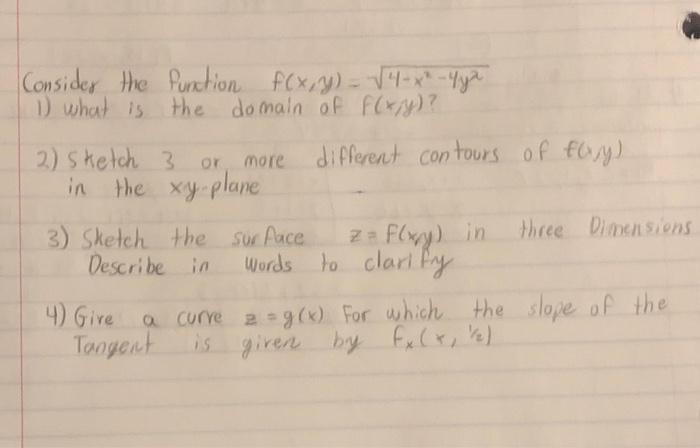 Consider the function f(x,y) = √4-x²-4y²
1) what is the domain of f(x,y)?
2) Sketch 3 or more different contours of f(x,y)
in the xy-plane
3) Sketch the surface z = f(x,y) in three Dimensions
Describe in words to clarify
4) Give a curve z = g(x) For which the slope of the
Tangent is given by fₓ(x, 1/2)